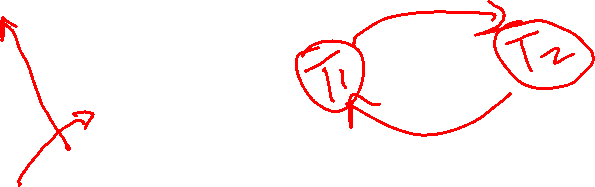 T1
T2